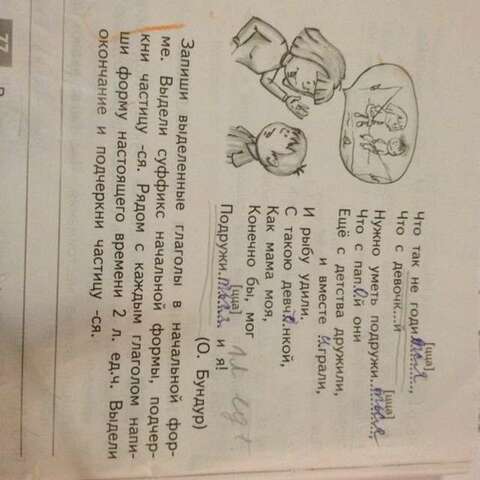 [цца]
Что так не годи..тся..,
Что с девочк...й
[цца]
Нужно уметь подружи...ться
Что с папой они
Ещё с детства дружили,
и вместе играли,
И рыбу удили.
С такою девчонкой,
Как мама моя,
Конечно бы, мог
[цца]
Подружиться и я!
(О. Бундур)
Запиши выделенные глаголы в начальной фор-
ме. Выдели суффикс начальной формы, подчер-
кни частицу -ся. Рядом с каждым глаголом напи-
ши форму настоящего времени 2 л. ед.ч. Выдели
окончание и подчеркни частицу -ся.
77